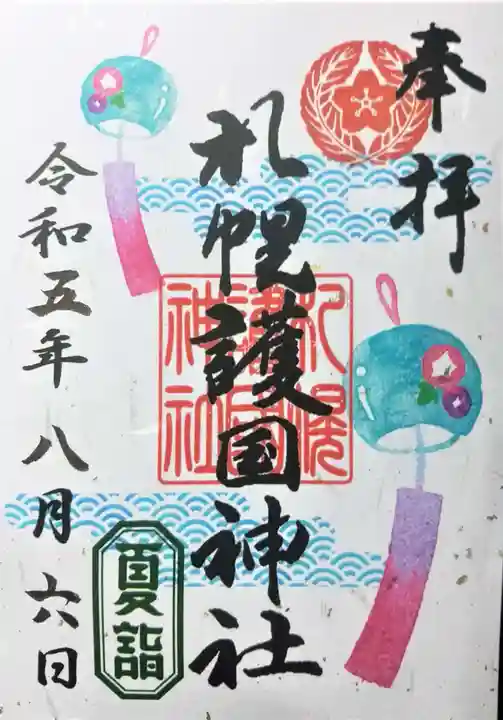 奉拝
札幌護国神社
札幌
護国
神社
夏詣
令和五年八月六日